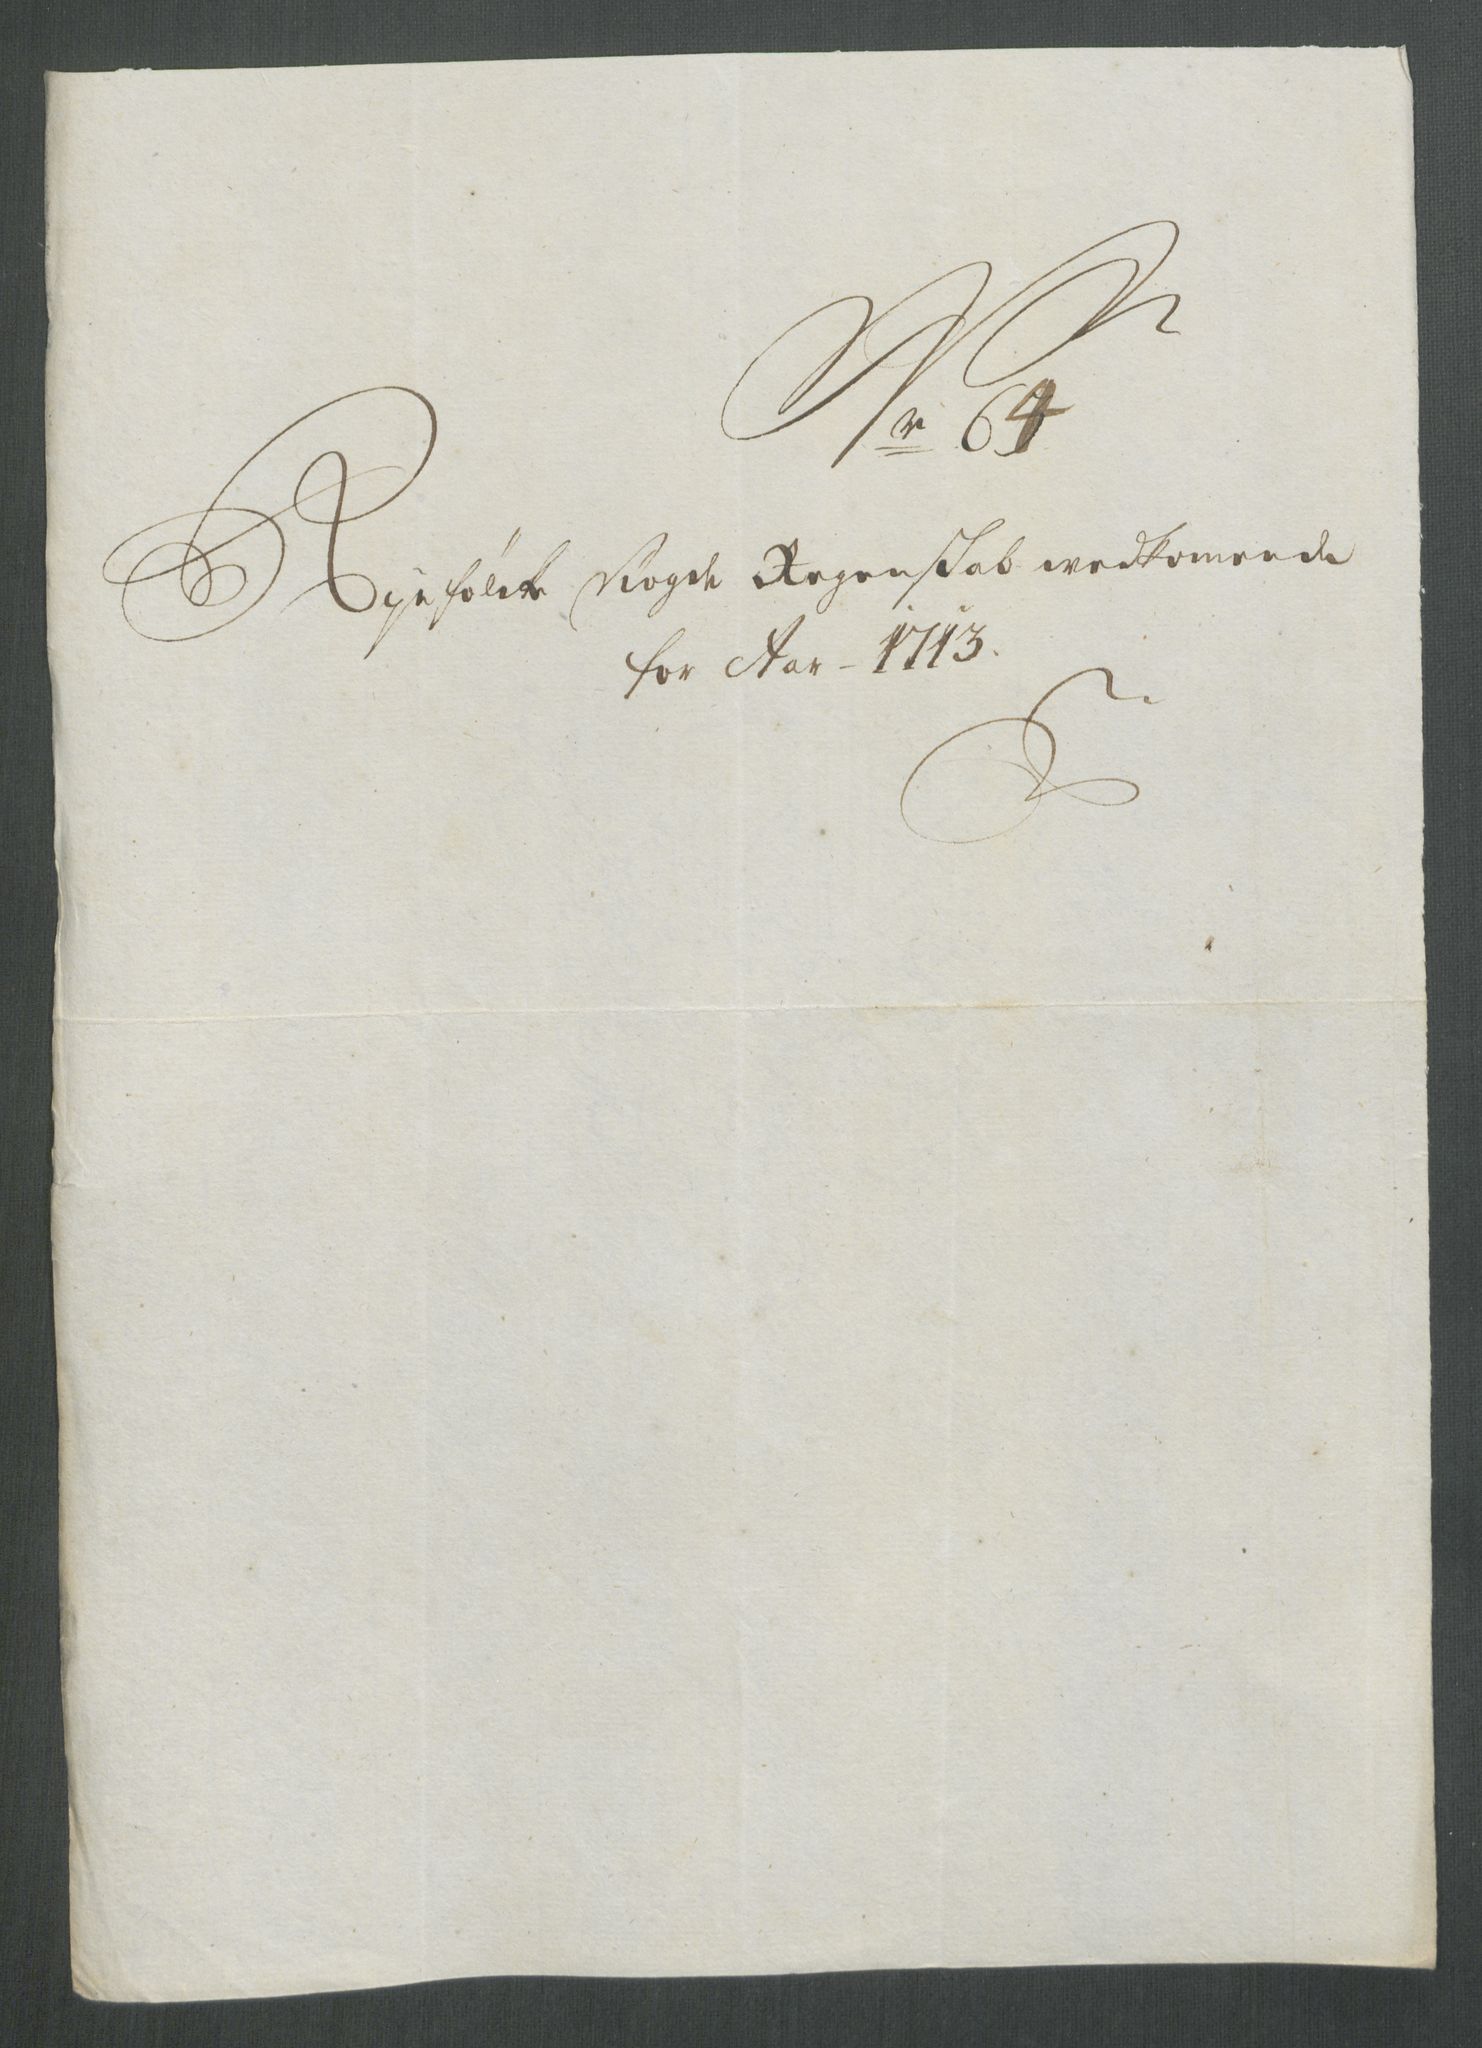 Nr 64
Ryefölcke Fogde Regenskab wedkomende
for Aar - 1713.